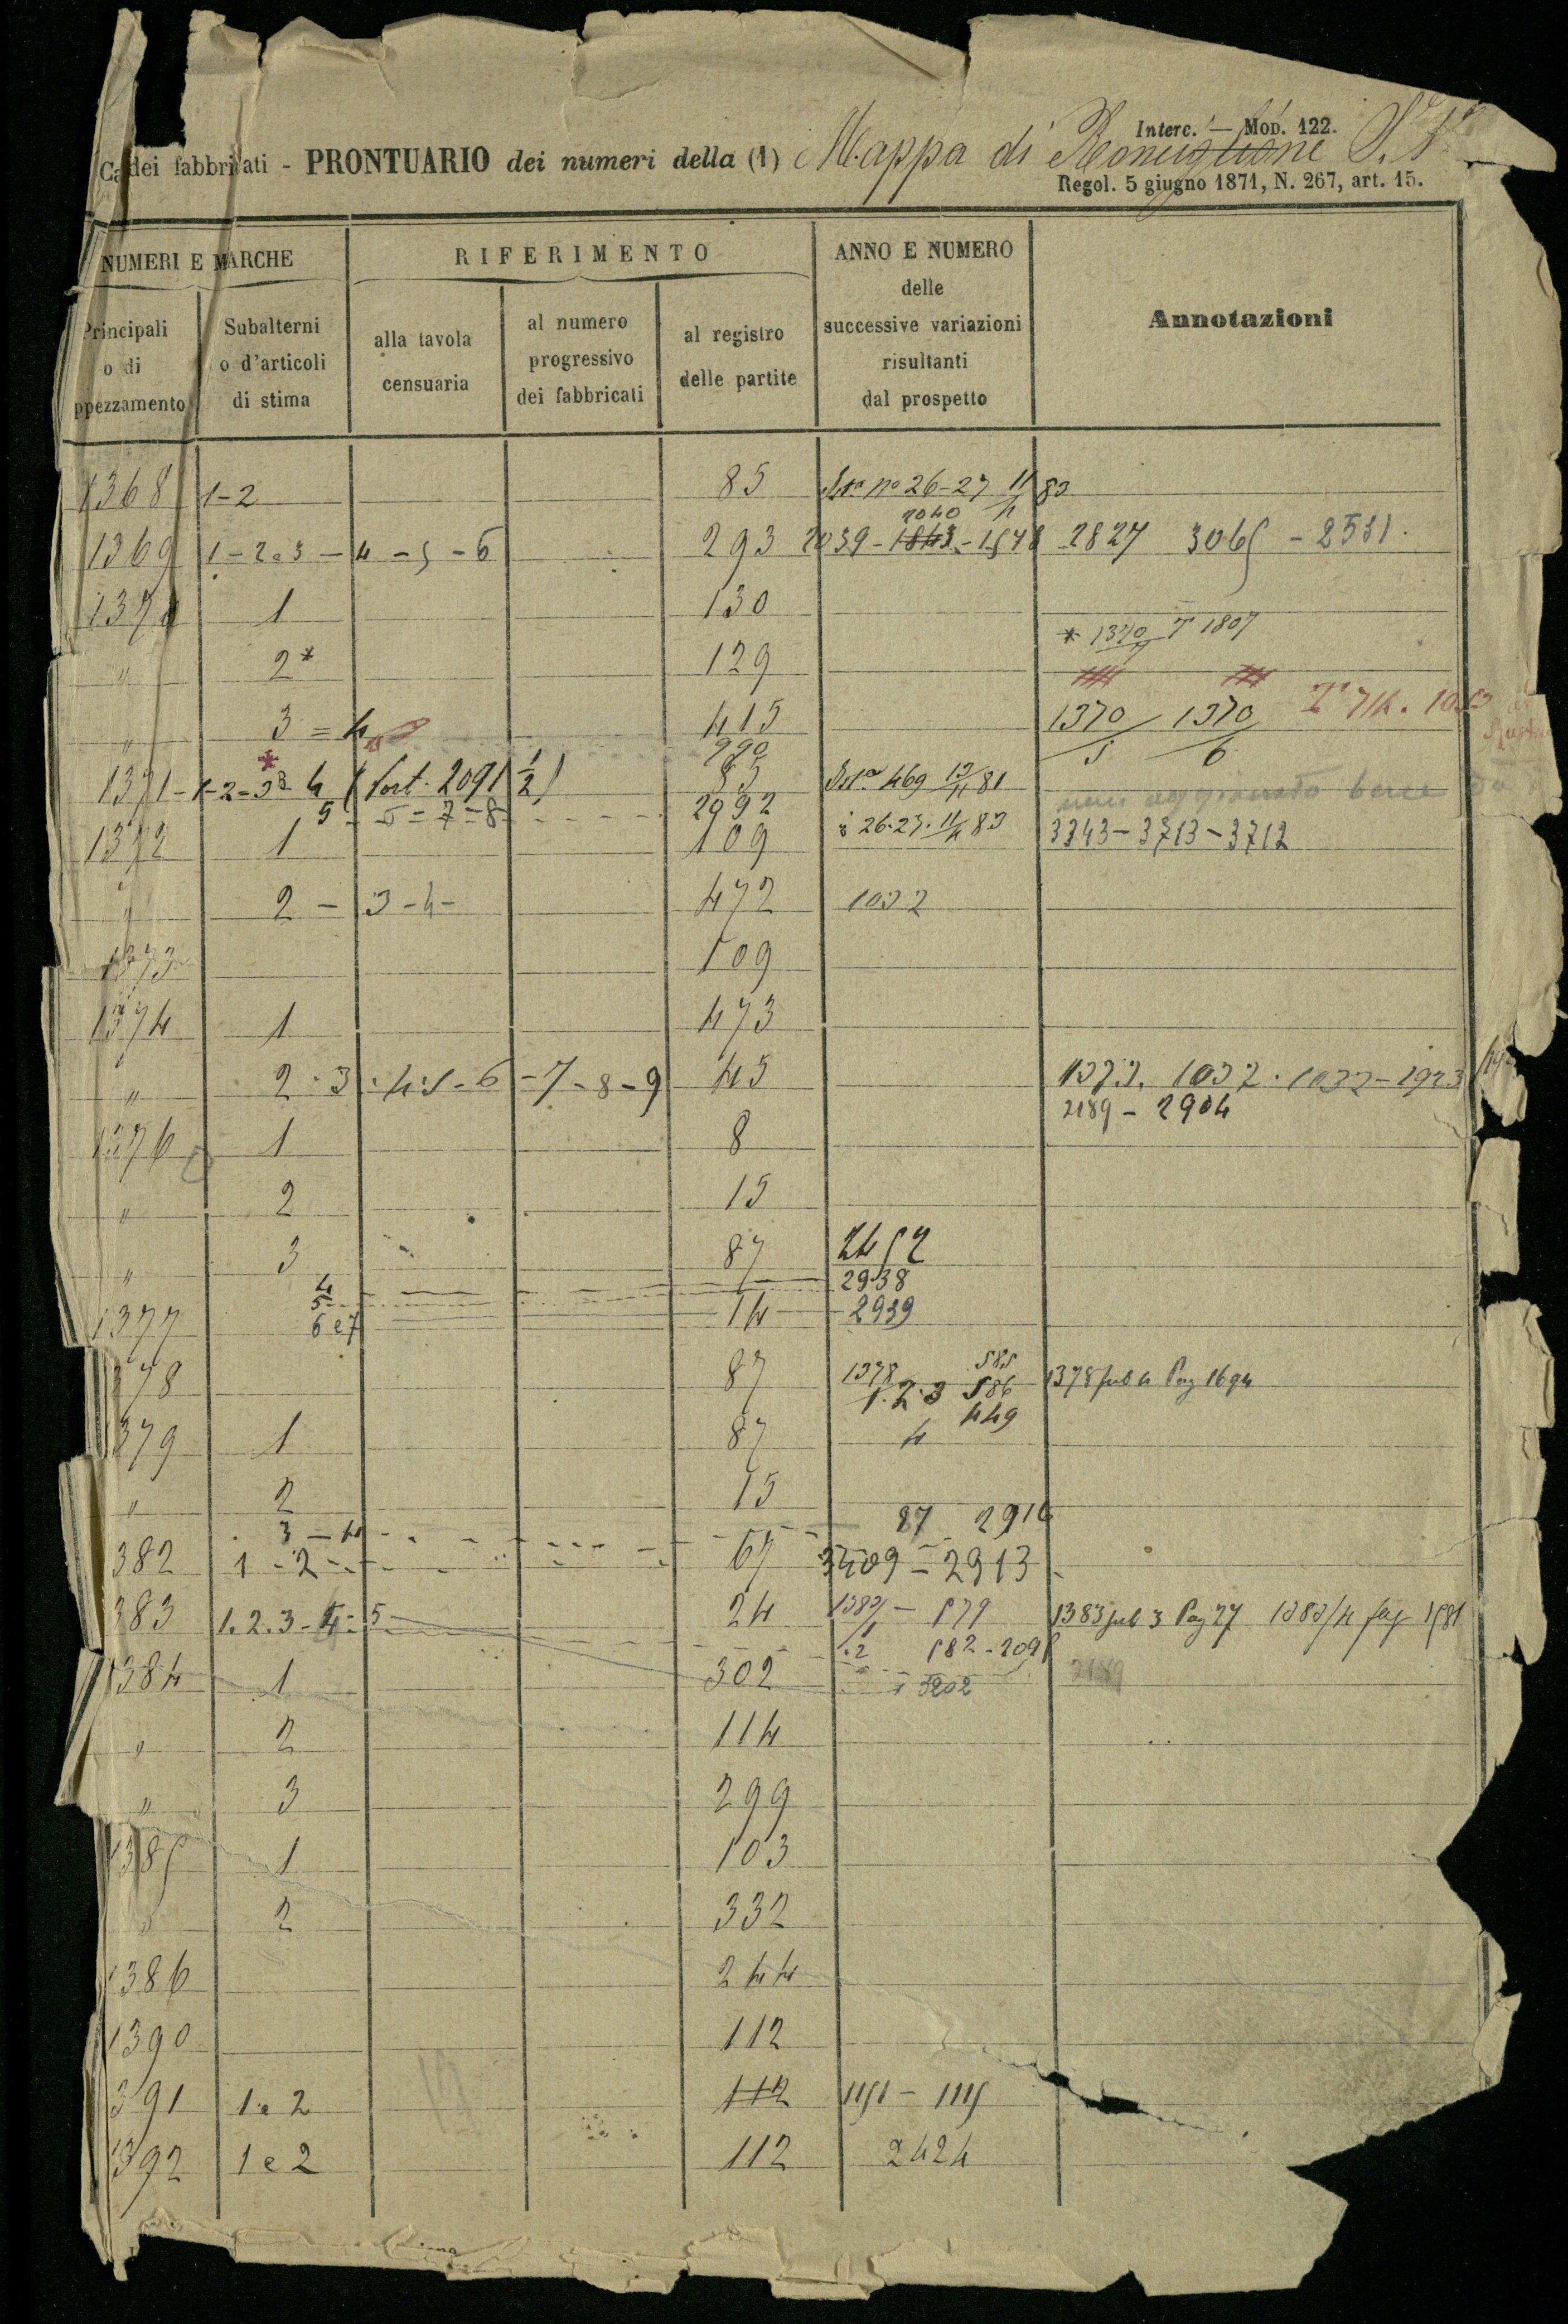 Interc. — Mod. 122.
Ca dei fabbricati - PRONTUARIO dei numeri della (1) Mappa di Ronciglione
Regol. 5 giugno 1871, N. 267, art. 15.
NUMERI E MARCHE RIFERIMENTO ANNO E NUMERO delle successive variazioni risultanti dal prospetto Annotazioni
Principali o di ppezzamento Subalterni o d'articoli di stima alla tavola censuaria al numero progressivo dei fabbricati al registro delle partite
1368 1-2 85 26-27 11/4 83
2040
1369 1-2e3-4-5-6 293 2039-1843-1548 2827 3065-2531.
1370 1 130
* 1370 1807
" 2* 129
" 3=4 415 1370/5 1370/6
990
1371-1-2-3 4 (fort. 2091 1/2) 85 469 81
5-5=7=8 2992
1372 1 109 26.27. 11/4 83 3343-3713-3712
" 2-3-4- 472 1032
1373 109
1374 1 473
" 2.3.4.5-6-7-8-9 45 1373. 1032. 1032-2923
2189-2904
1376 1 8
" 2 15
" 3 87 2452
4 2938
5
1377 6e7 14 2939
378 87 1378 585 1378 sub 4 Pag 1694
1.2.3 586
449
379 1 87 4
" 2 15
3-4 87 2916
382 1-2- 67 3409-2913
383 1.2.3-4-5 24 1383/1-579 1383 sub 3 Pag 27 1383/4 pag 1581
.2 582-2091
1384 1 302 3202 2189
" 2 114
" 3 299
1385 1 103
" 2 332
1386 244
1390 112
391 1e2 112 1151-1115
1392 1e2 112 2424